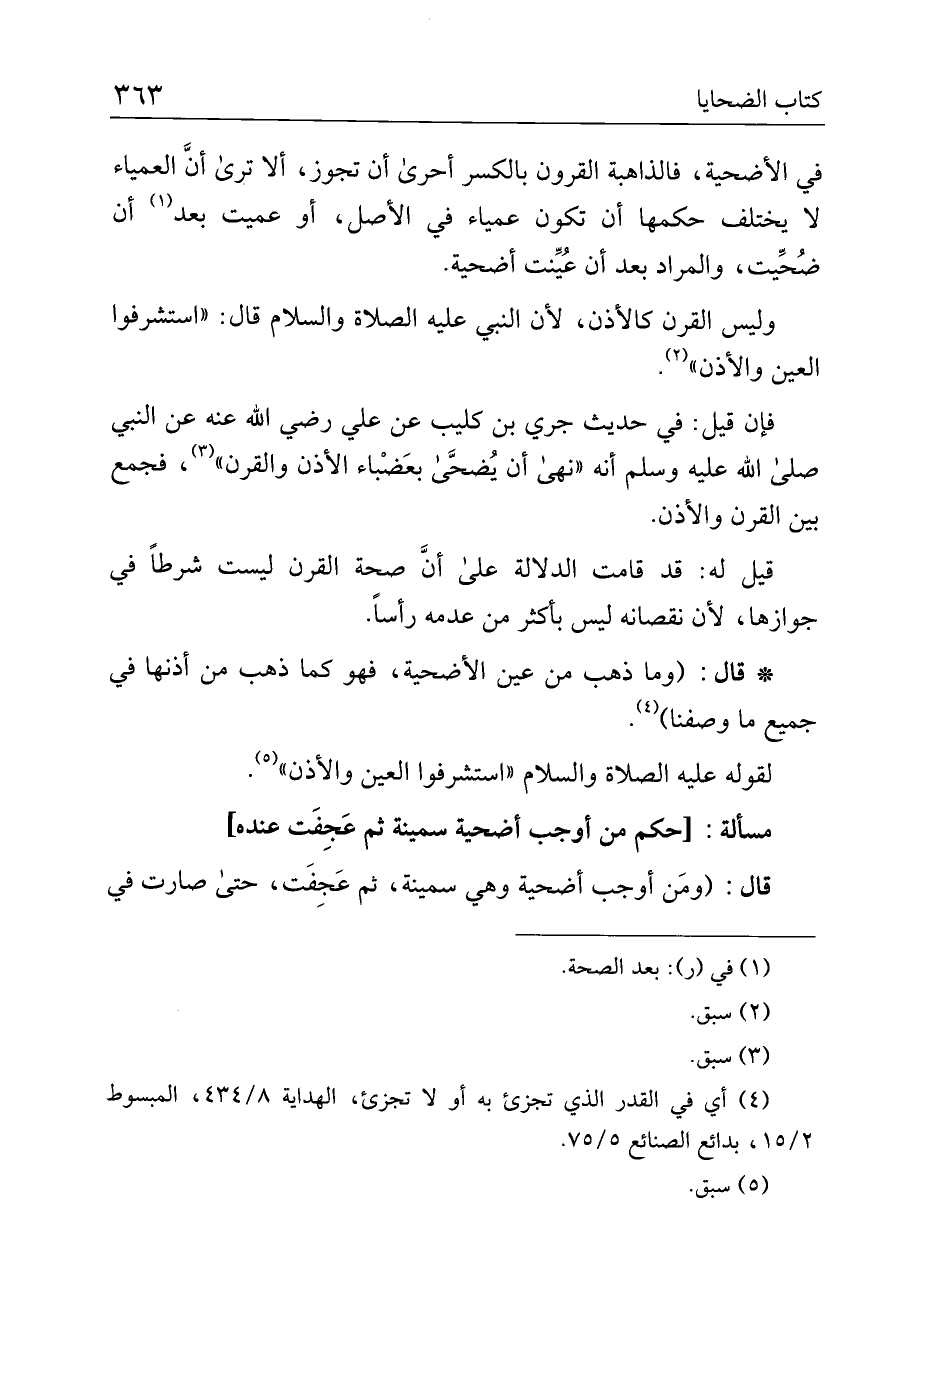 كتاب الضحايا ٣٦٣
في الأضحية، فالذاهبة القرون بالكسر أحرىٰ أن تجوز، ألا ترىٰ أنَّ العمياء
لا يختلف حكمها أن تكون عمياء في الأصل، أو عميت بعد(١) أن
ضُحِّيت، والمراد بعد أن عُيِّنت أضحية.
وليس القرن كالأذن، لأن النبي عليه الصلاة والسلام قال: «استشرفوا
العين والأذن»(٢).
فإن قيل: في حديث جري بن كليب عن علي رضي الله عنه عن النبي
صلىٰ الله عليه وسلم أنه «نهىٰ أن يُضحَّىٰ بعَضْباء الأذن والقرن»(٣)، فجمع
بين القرن والأذن.
قيل له: قد قامت الدلالة علىٰ أنَّ صحة القرن ليست شرطاً في
جوازها، لأن نقصانه ليس بأكثر من عدمه رأساً.
* قال : (وما ذهب من عين الأضحية، فهو كما ذهب من أذنها في
جميع ما وصفنا)(٤).
لقوله عليه الصلاة والسلام «استشرفوا العين والأذن»(٥).
مسألة : [حكم من أوجب أضحية سمينة ثم عَجِفَت عنده]
قال : (ومَن أوجب أضحية وهي سمينة، ثم عَجِفَت، حتىٰ صارت في
(١) في (ر): بعد الصحة.
(٢) سبق.
(٣) سبق.
(٤) أي في القدر الذي تجزئ به أو لا تجزئ، الهداية ٤٣٤/٨، المبسوط
١٥/٢، بدائع الصنائع ٧٥/٥.
(٥) سبق.